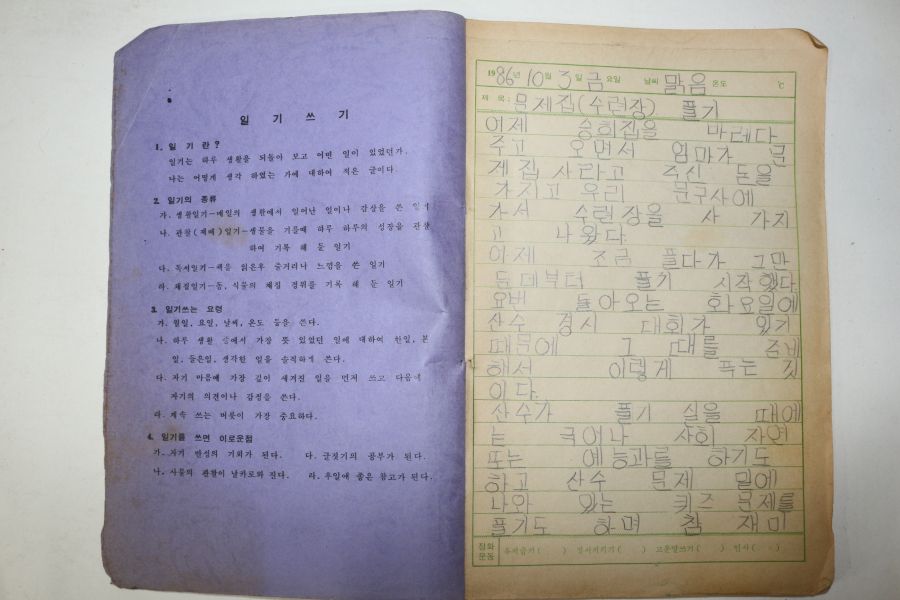 일 기 쓰 기
1. 일 기 란 ?
일기는 하루 생활을 되돌아 보고 어떤 일이 있었던가.
나는 어떻게 생각 하였는 가에 대하여 적은 글이다.
2. 일기의 종류
가. 생활일기—매일의 생활에서 일어난 일이나 감상을 쓴 일기
나. 관찰(재배)일기—생물을 기를때 하루 하루의 성장을 관찰
하여 기록 해 둔 일기
다. 독서일기—책을 읽은후 줄거리나 느낌을 쓴 일기
라. 채집일기—동, 식물의 채집 경위를 기록 해 둔 일기
3. 일기쓰는 요령
가. 월일, 요일, 날씨, 온도 등을 쓴다.
나. 하루 생활 중에서 가장 뜻 있었던 일에 대하여 한일, 본
일, 들은일, 생각한 일을 솔직하게 쓴다.
다. 자기 마음에 가장 깊이 새겨진 일을 먼저 쓰고 다음에
자기의 의견이나 감정을 쓴다.
라. 계속 쓰는 버릇이 가장 중요하다.
4. 일기를 쓰면 이로운점
가. 자기 반성의 기회가 된다. 다. 글짓기의 공부가 된다.
나. 사물의 관찰이 날카로와 진다. 라. 후일에 좋은 참고가 된다.
1986년 10월 3일 금요일 날씨 맑음 온도 ℃
제 목: 문제집(수련장) 풀기
어제 승희집을 바레다
주고 오면서 엄마가 문
제집 사라고 주신 돈을
가지고 우리 문구사에
가서 수련장을 사 가지
고 나왔다.
어제 조금 풀다가 그만
둔데부터 풀기 시작했다.
요번 돌아오는 화요일에
산수 경시 대회가 있기
때문에 그 때를 준비
해서 이렇게 푸는 것
이다.
산수가 풀기 싫을 때에
는 국어나 사회 자연
또는 예능과를 하기도
하고 산수 문제 밑에
나와 있는 퀴즈 문제를
풀기도 하며 참 재미
정화
운동 휴지줍기( ) 질서지키기( ) 고운말쓰기( ) 인사( )